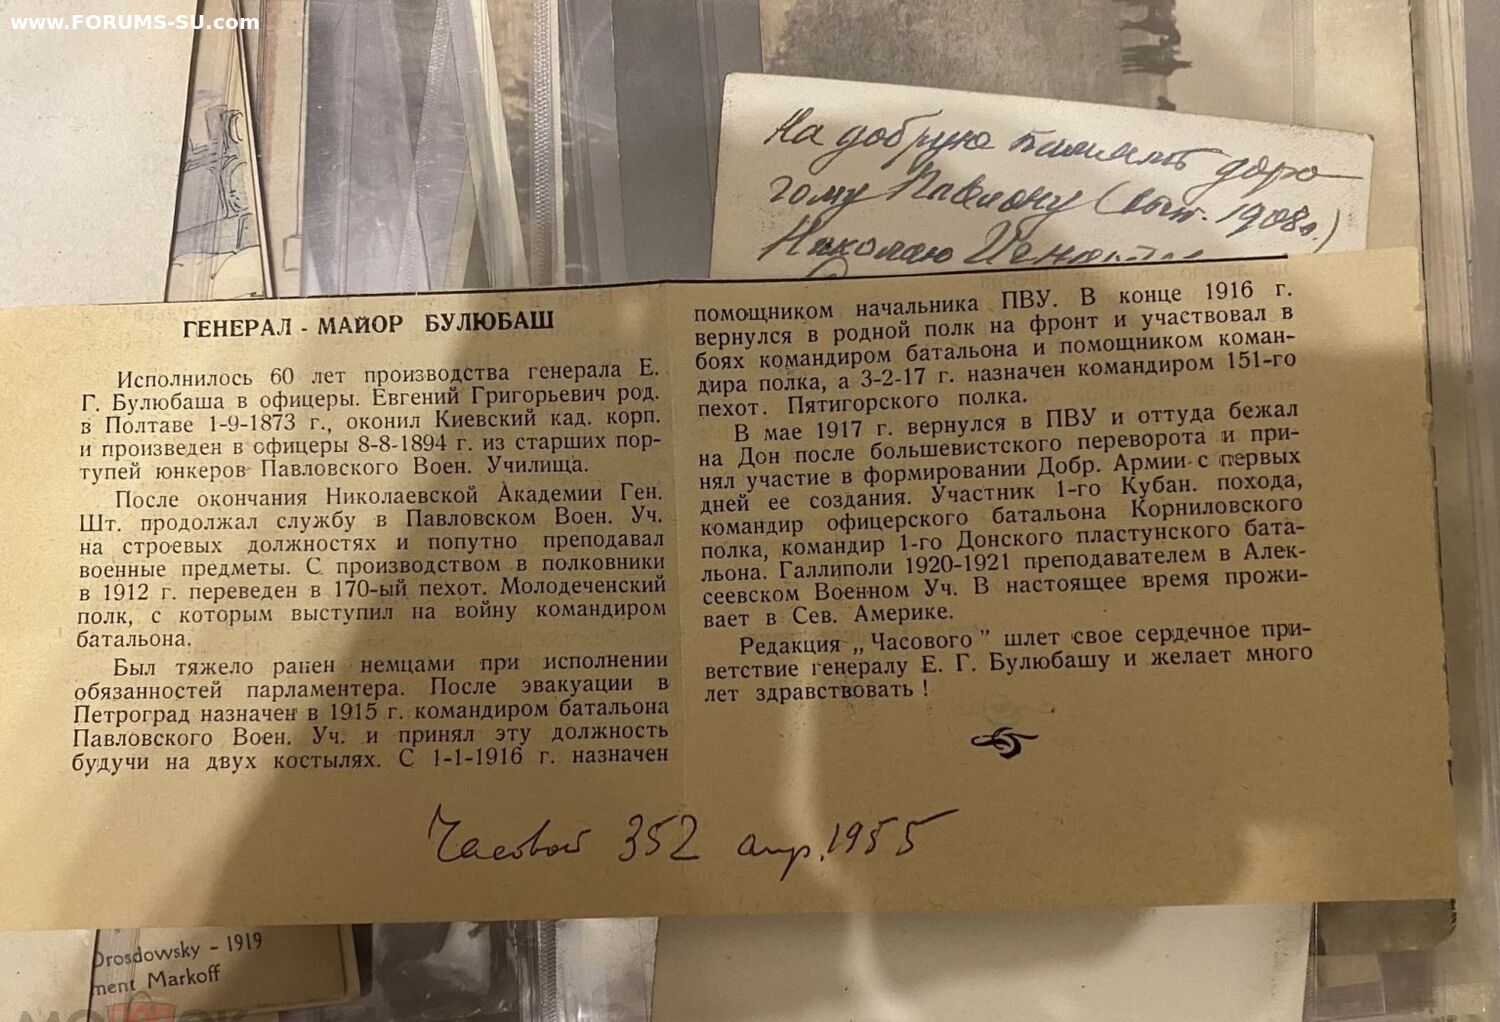 www.FORUMS-SU.com
На добрую память доро-
гому Павлону (вып. 1908г.)
Николаю
ГЕНЕРАЛ - МАЙОР БУЛЮБАШ
Исполнилось 60 лет производства генерала Е.
Г. Булюбаша в офицеры. Евгений Григорьевич род.
в Полтаве 1-9-1873 г., оконил Киевский кад. корп.
и произведен в офицеры 8-8-1894 г. из старших пор-
тупей юнкеров Павловского Воен. Училища.
После окончания Николаевской Академии Ген.
Шт. продолжал службу в Павловском Воен. Уч.
на строевых должностях и попутно преподавал
военные предметы. С производством в полковники
в 1912 г. переведен в 170-ый пехот. Молодеченский
полк, с которым выступил на войну командиром
батальона.
Был тяжело ранен немцами при исполнении
обязанностей парламентера. После эвакуации в
Петроград назначен в 1915 г. командиром батальона
Павловского Воен. Уч. и принял эту должность
будучи на двух костылях. С 1-1-1916 г. назначен
помощником начальника ПВУ. В конце 1916 г.
вернулся в родной полк на фронт и участвовал в
боях командиром батальона и помощником коман-
дира полка, а 3-2-17 г. назначен командиром 151-го
пехот. Пятигорского полка.
В мае 1917 г. вернулся в ПВУ и оттуда бежал
на Дон после большевистского переворота и при-
нял участие в формировании Добр. Армии с первых
дней ее создания. Участник 1-го Кубан. похода,
командир офицерского батальона Корниловского
полка, командир 1-го Донского пластунского бата-
льона. Галлиполи 1920-1921 преподавателем в Алек-
сеевском Военном Уч. В настоящее время прожи-
вает в Сев. Америке.
Редакция „Часового" шлет свое сердечное при-
ветствие генералу Е. Г. Булюбашу и желает много
лет здравствовать !
Часовой 352 апр. 1955
Drosdowsky - 1919
ment Markoff